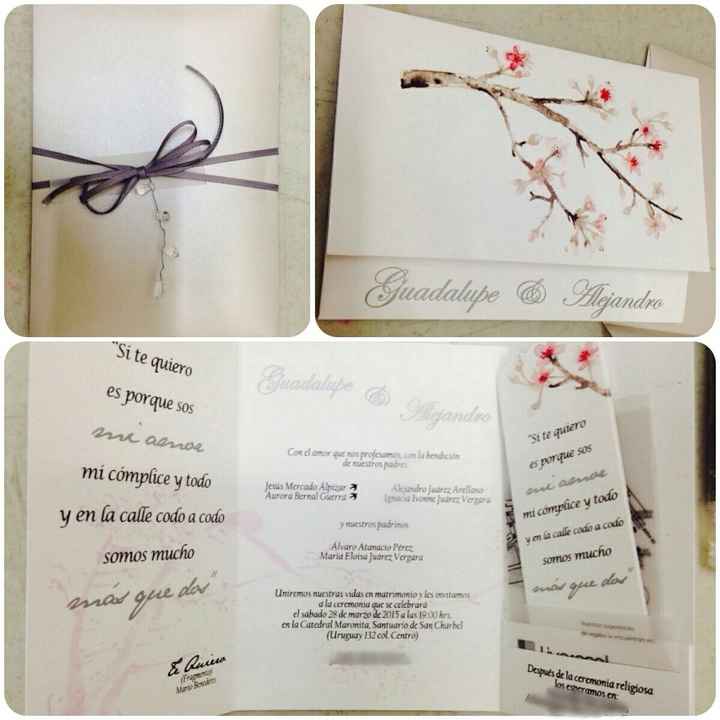 Guadalupe & Alejandro
"Si te quiero
es porque sos
mi amor
mi cómplice y todo
y en la calle codo a codo
somos mucho
más que dos"
Te Quiero
(Fragmento)
Mario Benedetti
Guadalupe & Alejandro
Con el amor que nos profesamos, con la bendición
de nuestros padres
Jesús Mercado Alpízar Alejandro Juárez Arellano
Aurora Bernal Guerra Ignacia Ivonne Juárez Vergara
y nuestros padrinos
Álvaro Atanacio Pérez
María Eloisa Juárez Vergara
Uniremos nuestras vidas en matrimonio y les invitamos
a la ceremonia que se celebrará
el sábado 28 de marzo de 2015 a las 19:00 hrs.
en la Catedral Maronita, Santuario de San Charbel
(Uruguay 132 col. Centro)
"Si te quiero
es porque sos
mi amor
mi cómplice y todo
y en la calle codo a codo
somos mucho
más que dos"
Liverpool
Después de la ceremonia religiosa
los esperamos en: